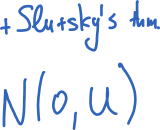 + Slutsky's thm
N(0, U)